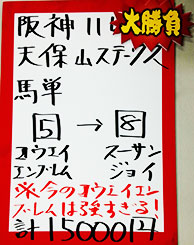 阪神11R
大勝負
天保山ステークス
馬単
5 → 8
コウエイ スーサン
エンブレム ジョイ
※今のコウエイエン
ブレムは強すぎる!
計15000円